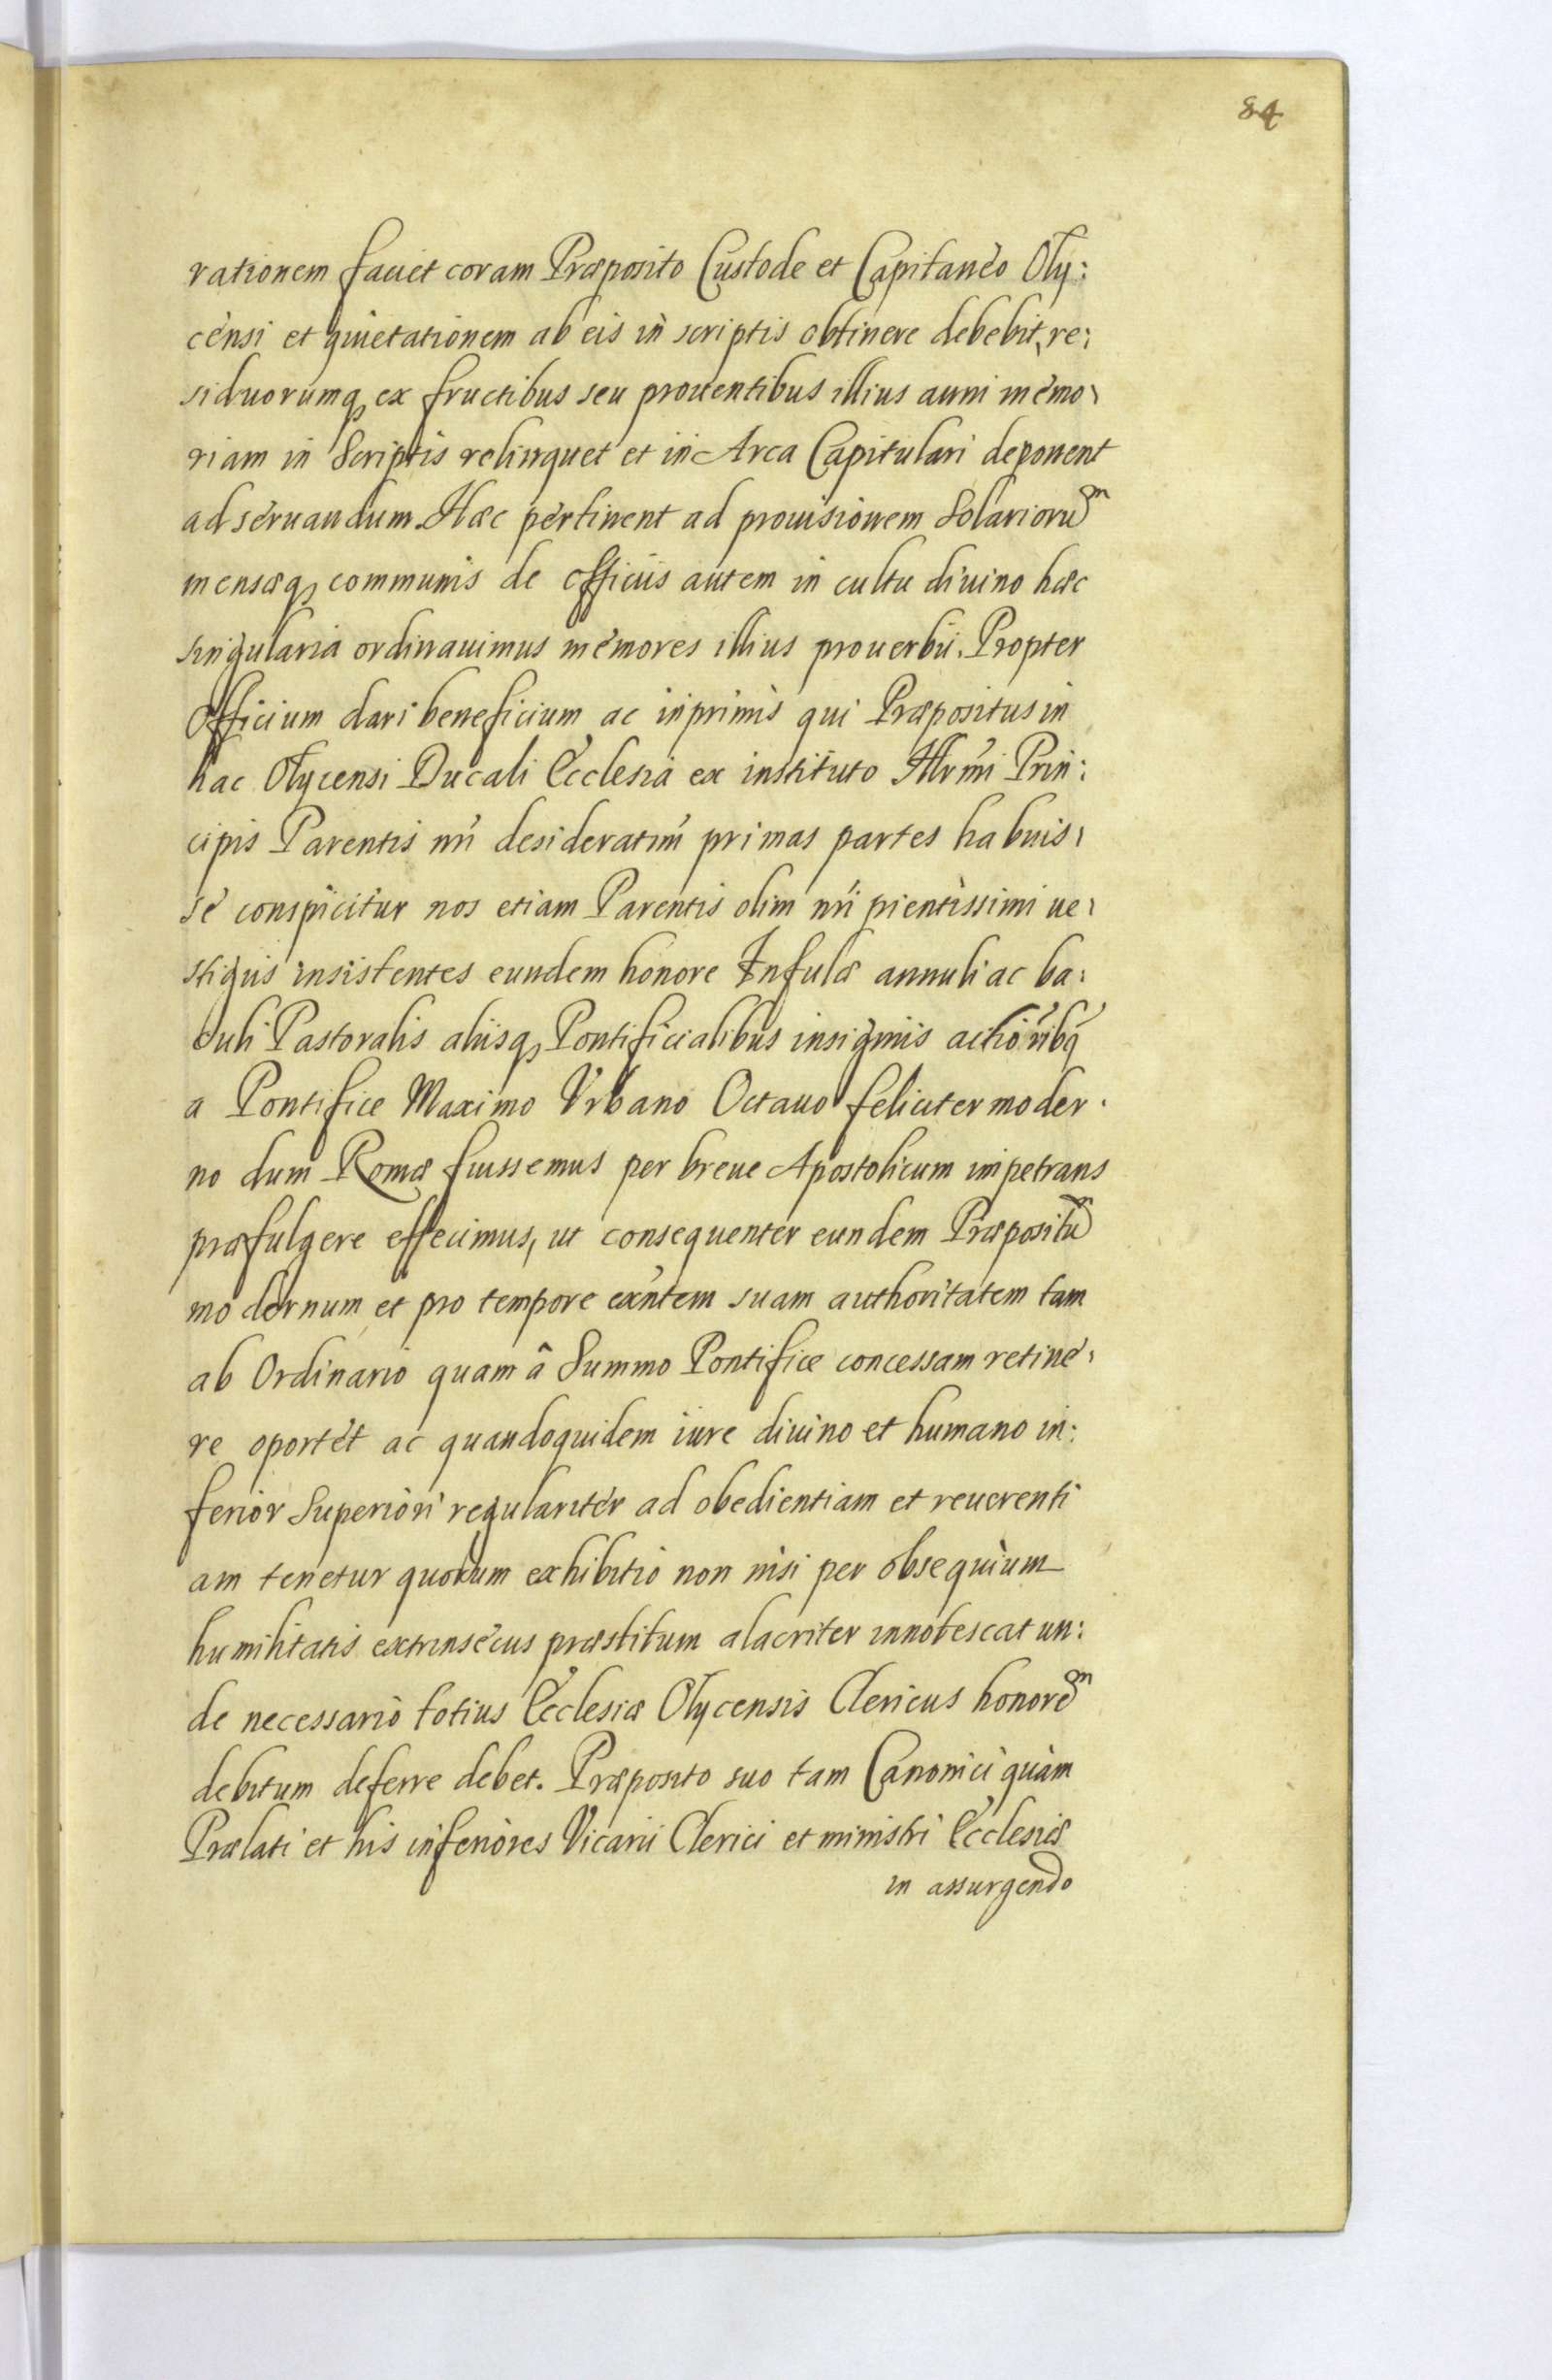 84
rationem faciet coram Præposito Custode et Capitaneo Oly:
censi et quietationem ab eis in scriptis obtinere debebit, re:
siduorumq, ex fructibus seu prouentibus illius anni memo:
riam in Scriptis relinquet et in Arca Capitulari deponent
ad seruandum. Hæc pertinent ad prouisionem Solarioru͂m
mensæq, communis de officiis autem in cultu diuino hæc
singularia ordinauimus memores illius prouerbii. Propter
Officium dari beneficium, ac inprimis qui Præpositus in
hac Olycensi Ducali Ecclesia ex instituto Illrm̃i Prin:
cipis Parentis nr̃i desideratim̃ primas partes habuis:
se conspicitur nos etiam Parentis olim nr̃i pientissimi ue:
stigiis insistentes eundem honore Infulæ annuli ac ba:
culi Pastoralis aliisq, Pontificialibus insigniis actiõnibq̃
a Pontifice Maximo Vrbano Octauo feliciter moder:
no dum Romæ fuissemus per breue Apostolicum impetrans
præfulgere effecimus, ut consequenter eundem Præpositu͂m
modernum et pro tempore exñtem suam authoritatem tam
ab Ordinario quam â Summo Pontifice concessam retine:
re oportet ac quandoquidem iure diuino et humano in:
ferior Superiori regulariter ad obedientiam et reuerenti
am tenetur quorum exhibitio non nisi per obsequium
humilitatis extrinsecus præstitum alacriter innotescat un:
de necessario totius Ecclesiæ Olycensis Clericus honore͂m
debitum deferre debet. Præposito suo tam Canonici quàm
Prælati et his inferiores Vicarii Clerici et ministri Ecclesiæ
in assurgendo